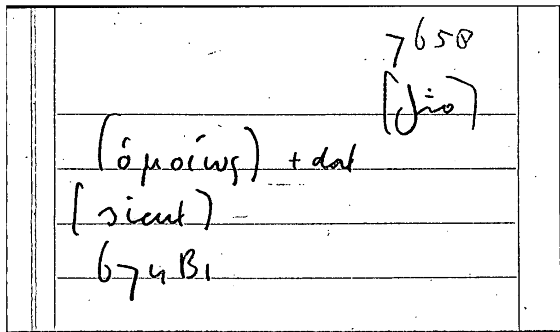 7658
(ὁμοίως) + dat
[sicut)
674B1